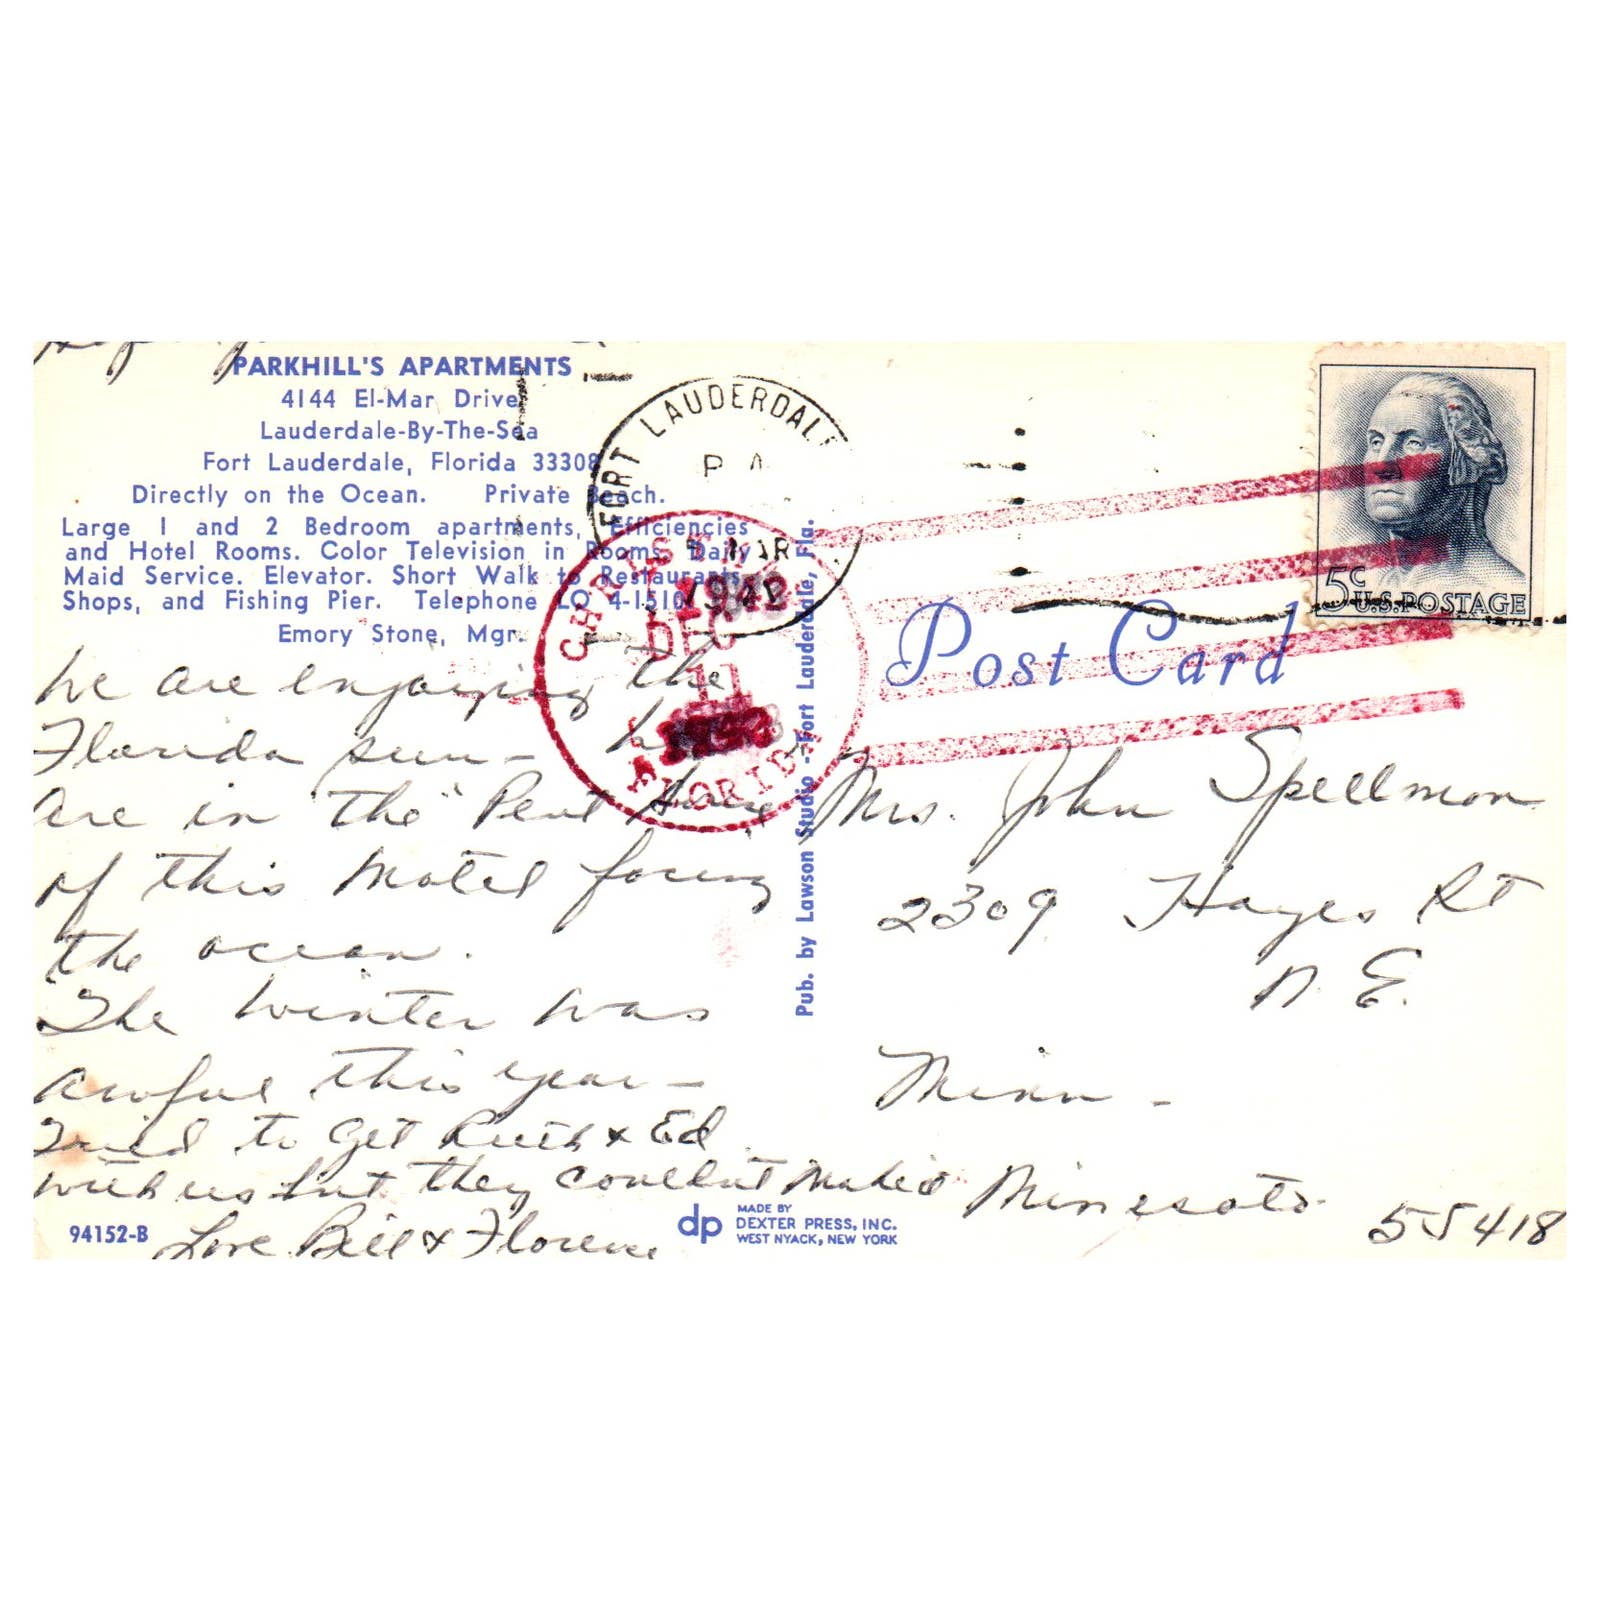 PARKHILL'S APARTMENTS
4144 El-Mar Drive
Lauderdale-By-The-Sea
Fort Lauderdale, Florida 33308
Directly on the Ocean. Private Beach.
Large 1 and 2 Bedroom apartments, Efficiencies
and Hotel Rooms. Color Television in Rooms. Daily
Maid Service. Elevator. Short Walk to Restaurants,
Shops, and Fishing Pier. Telephone LO 4-1510
Emory Stone, Mgr.
We are enjoying the
Florida sun - We
are in the "Pent House"
of this Motel facing
the ocean.
The winter was
awful this year -
Tried to get Ruth & Ed
with us but they couldn't make it
Love Bill & Florence
94152-B
FORT LAUDERDALE
MAR
CHRISTMAS
DEC
11
FLORIDA
Pub. by Lawson Studio - Fort Lauderdale, Fla.
dp
MADE BY
DEXTER PRESS, INC.
WEST NYACK, NEW YORK
5c
U.S. POSTAGE
Post Card
Mrs. John Spellman
2309 Hayes St
N. E.
Minn -
Minnesota
55418